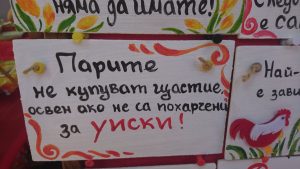 няма да имате!
Следв
е са
Парите
не купуват щастие,
освен ако не са похарчени
за уиски!
Най-
е зави